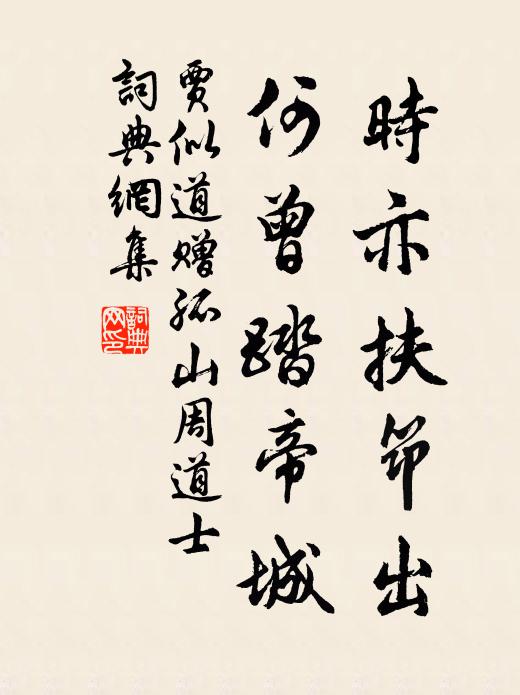 時亦扶笻出
何曾踏帝城
賈似道赠孤山周道士
詞典網集
詞典网印